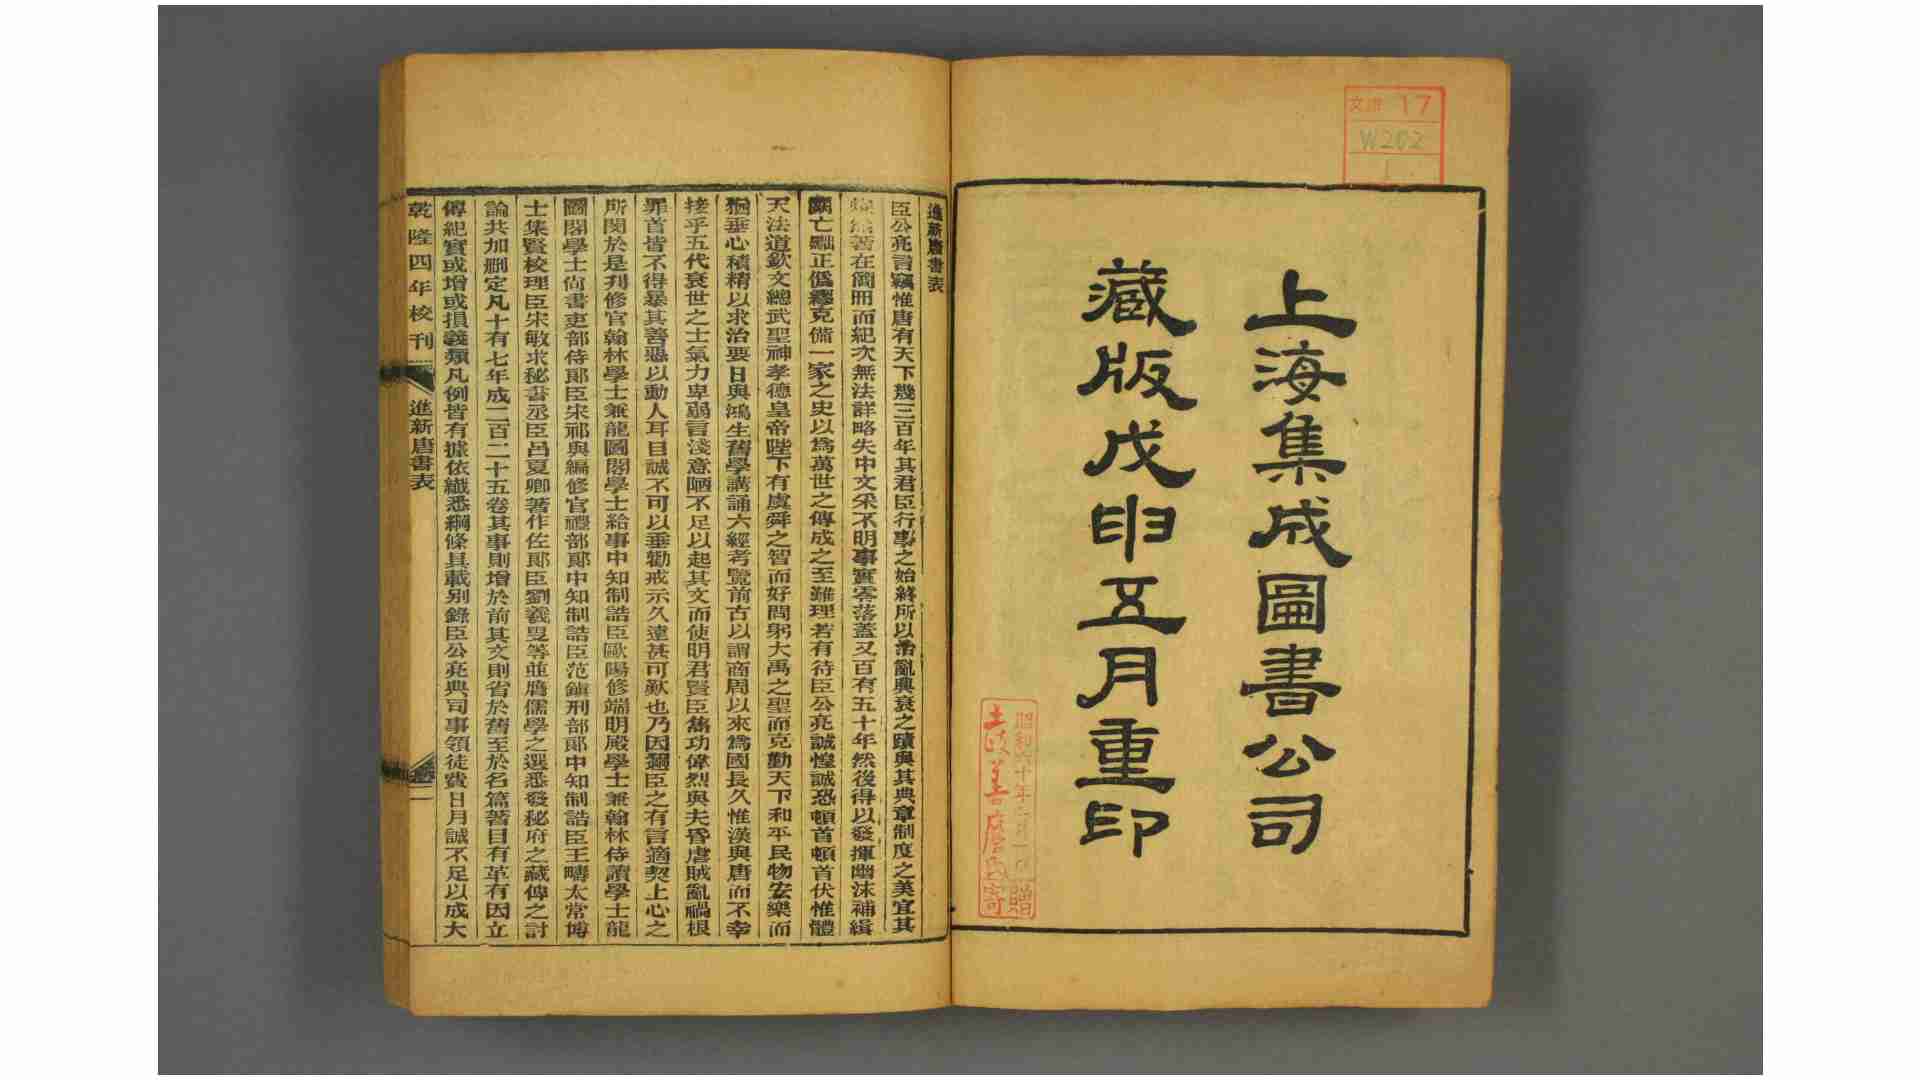 文庫 17
W202
1
上海集成圖書公司
藏版戊申五月重印
昭和六十年
贈
寄
進新唐書表
臣公亮言竊惟唐有天下幾三百年其君臣行事之始終所以治亂興衰之蹟與其典章制度之美宜其
粲然著在簡冊而紀次無法詳略失中文采不明事實零落蓋又百有五十年然後得以發揮幽沫補緝
闕亡黜正僞繆克備一家之史以爲萬世之傳成之至難理若有待臣公亮誠惶誠恐頓首頓首伏惟體
天法道欽文總武聖神孝德皇帝陛下有虞舜之智而好問躬大禹之聖而克勤天下和平民物安樂而
猶垂心積精以求治要日與鴻生舊學講誦六經考覽前古以謂商周以來爲國長久惟漢與唐而不幸
接乎五代衰世之士氣力卑弱言淺意陋不足以起其文而使明君賢臣雋功偉烈與夫昏虐賊亂禍根
罪首皆不得暴其善惡以動人耳目誠不可以垂勸戒示久遠甚可歎也乃因邇臣之有言適契上心之
所閔於是刋修官翰林學士兼龍圖閣學士給事中知制誥臣歐陽修端明殿學士兼翰林侍讀學士龍
圖閣學士尙書吏部侍郞臣宋祁與編修官禮部郞中知制誥臣范鎭刑部郞中知制誥臣王疇太常博
士集賢校理臣宋敏求秘書丞臣呂夏卿著作佐郞臣劉羲叟等並膺儒學之選悉發秘府之藏俾之討
論共加删定凡十有七年成二百二十五卷其事則增於前其文則省於舊至於名篇著目有革有因立
傳紀實或增或損義類凡例皆有據依纖悉綱條具載別錄臣公亮典司事領徒費日月誠不足以成大
乾隆四年校刊
進新唐書表